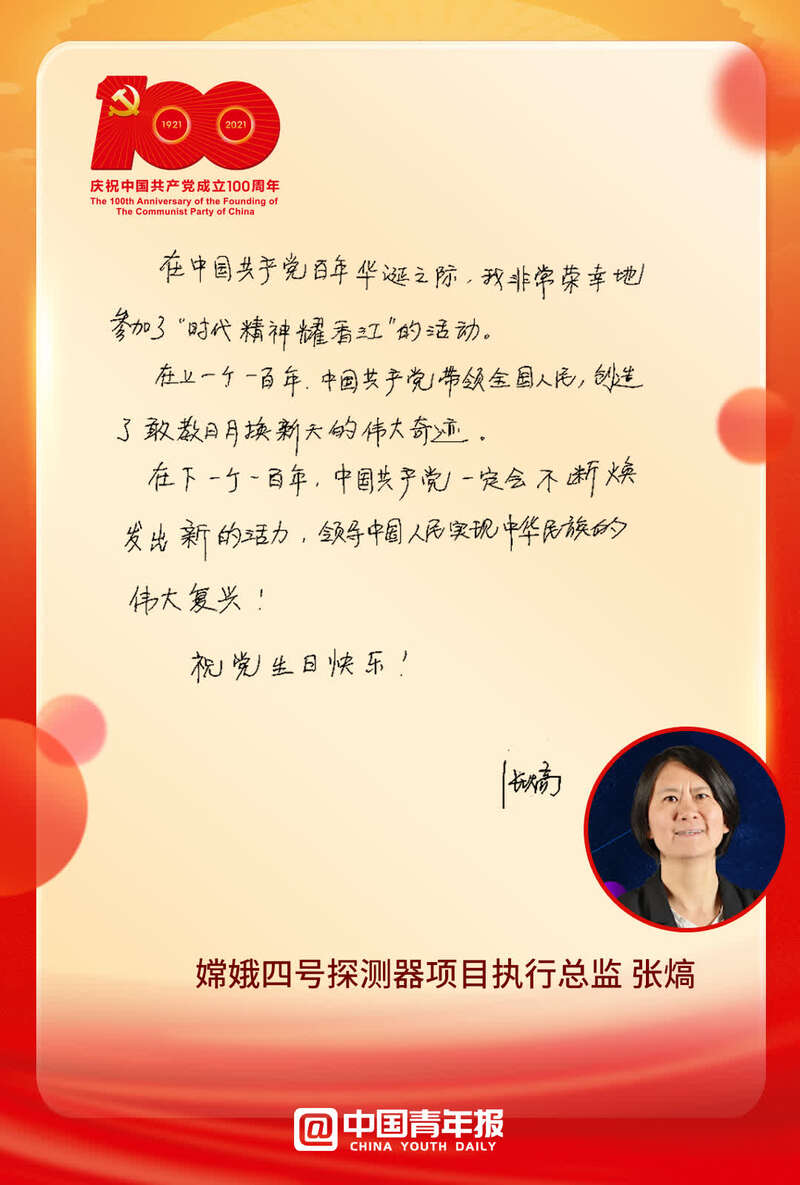 1921
2021
庆祝中国共产党成立100周年
The 100th Anniversary of the Founding of
The Communist Party of China
在中国共产党百年华诞之际，我非常荣幸地
参加了“时代精神耀香江”的活动。
在上一个一百年，中国共产党带领全国人民，创造
了敢教日月换新天的伟大奇迹。
在下一个一百年，中国共产党一定会不断焕
发出新的活力，领导中国人民实现中华民族的
伟大复兴！
祝党生日快乐！
张熇
嫦娥四号探测器项目执行总监 张熇
@中国青年报
CHINA YOUTH DAILY